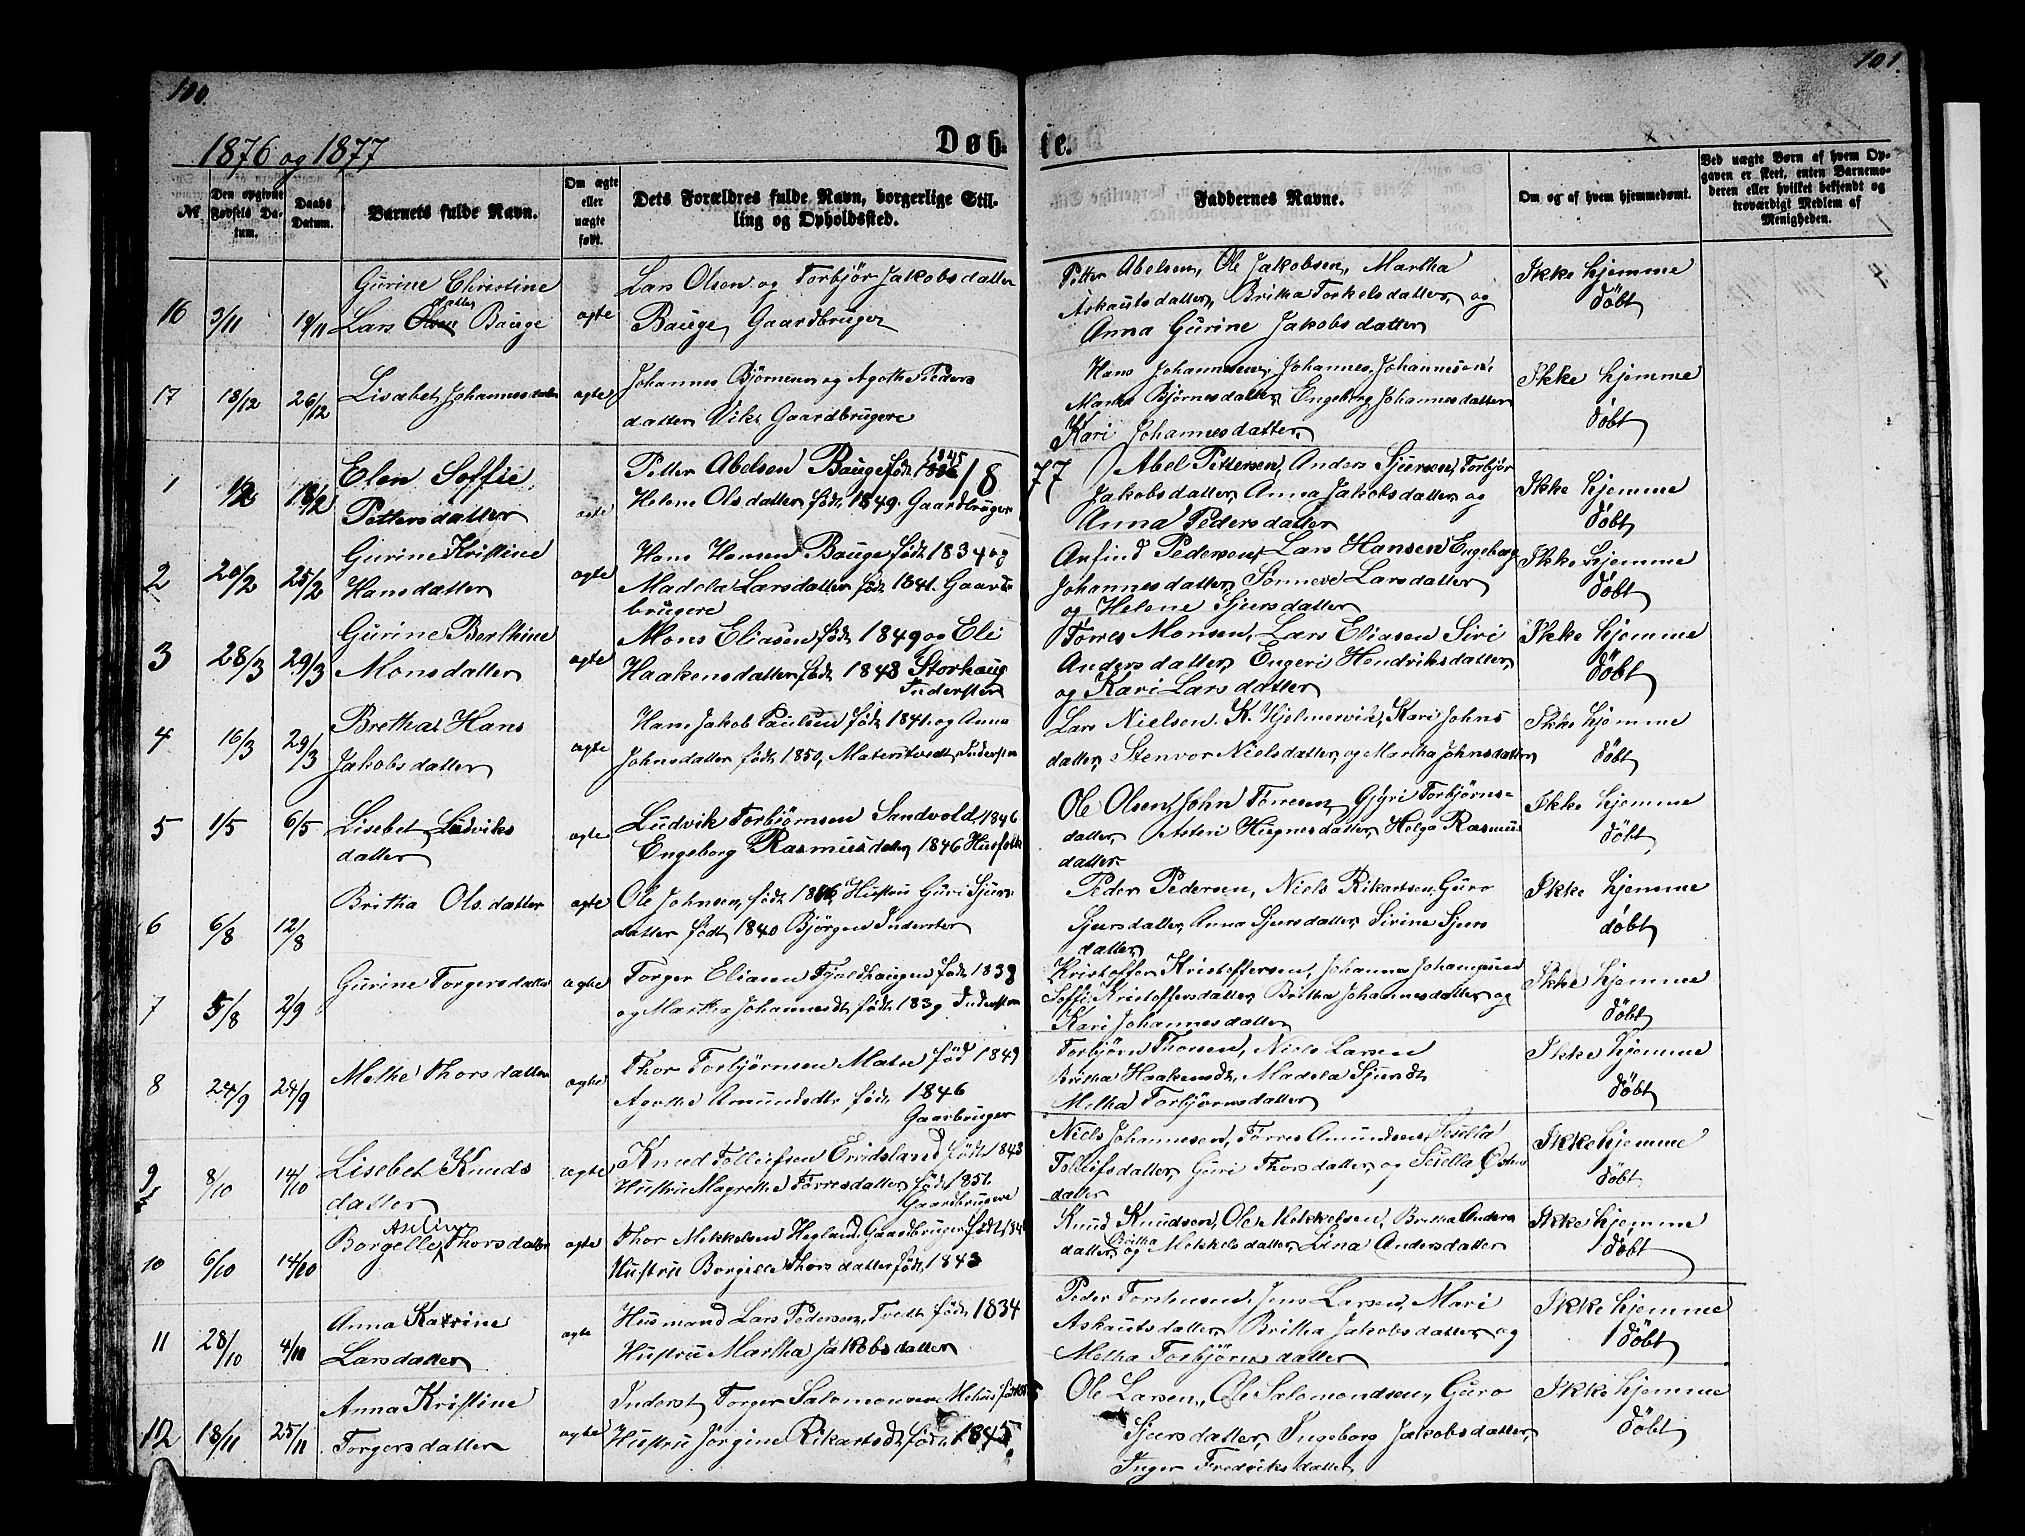 100.
101.
1876 og 1877
Døb- te.
№
Den opgivne Fødsels Datum.
Daabs Datum.
Barnets fulde Navn.
Om ægte eller uægte født.
Dets Forældres fulde Navn, borgerlige Stilling og Opholdssted.
Faddernes Navne.
Om og af hvem hjemmedøbt.
Ved uægte Børn af hvem Opgaven er skeet, enten Barnemoderen eller hvilket bekjendt og troværdigt Medlem af Menigheden.
Gurine Christine Lars Olsen Petter Abelsen, Ole Jakobsen, Martha Ikke hjemme
16 3/11 19/11 Lars datter Bauge ægte og Torbjør Jakobsdatter Askautsdatter, Britha Torkelsdatter, og døbt
Bauge, Gaardbruger Anna Gurine Jakobsdatter
17 18/12 26/12 Lisabet Johannesdatter ægte Johannes Bjørnsen og Agothe Peders Hans Johannesen, Johannes Johannesen, Ikke hjemme
datter Vik, Gaardbrugere Marta Bjørnesdatter, Engeborg Johannesdatter døbt
Kari Johannesdatter,
1877
1 1/2 18/2 Elen Soffie ægte Petter Abelsen Bauge født 1845 Abel Pettersen, Anders Sjursen, Torbjør Ikke hjemme
Pettersdatter Helene Olsdatter født 1849. Gaardbruger Jakobsdatter, Anna Jakobsdatter, og døbt
Anna Pedersdatter
2 20/2 25/2 Gurine Kristine ægte Hans Hansen Bauge født 1834 og Anfind Pedersen, Lars Hansen, Engeborg Ikke hjemme
Hansdatter Madela Larsdatter født 1841. Gaardbrugere Johannesdatter, Sønneve Larsdatter døbt
og Helene Sjursdatter
3 28/3 29/3 Gurine Berthine ægte Mons Eliasen født 1849 og Eli Tørres Monsen, Lars Eliasen Siri Ikke hjemme
Monsdatter Haakensdatter født 1848 Storhaug Andersdatter, Engeri Hendriksdatter, døbt
Inderster og Kari Larsdatter
4 16/3 29/3 Bretha Hans ægte Hans Jakob Paulsen født 1841. og Anna Lars Nielsen. K. Hjelmervik, Kari Johns Ikke hjemme
Jakobsdatter Johnsdatter født 1850, Inderster datter, Stenvor Nielsdatter, og Martha Johnsdatter døbt
5 1/5 6/5 Lisebet Ludviks ægte Ludvik Torbjørnsen Sandvold 1846 Ole Olsen, John Tørresen, Gjyri Torbjørns- Ikke hjemme
datter Engeborg Rasmusdatter 1846 Husfolk datter, Asteri datter, Helga Rasmus døbt
datter.
6 6/8 12/8 Britha Olsdatter ægte Ole Johnsen, født Hustru Guri Sjurs- Peder Pedersen, Niels Rikartsen, Guro Ikke hjemme
datter født 1840 Bjørgen Inderster Sjursdatter, Anna Sjursdatter, Sirine Sjurs døbt
datter
7 5/8 2/9 Gurine Torgersdatter ægte Torger Eliasen Fjeldhaugen født 1838 Kristoffer Kristoffersen, Johannes Johannesen Ikke hjemme
og Martha Johannesdt. født 1839 Inderster Soffi Kristoffersdatter, Britha Johannesdatter, og døbt
Kari Johannesdatter
8 24/9 24/9 Methe Thorsdatter ægte Thor Torbjørnsen Matre født 1849 Torbjørn Thorsen, Niels Larsen Ikke hjemme
Agothe Amundsdtr. født 1846 Britha Haakensdt, Madela Sjursdt, døbt
Gaarbruger Metha Torbjørnsdatter
9 8/10 14/10 Lisebet Knuds ægte Knud Tollefsen født 1843 Niels Johannesen, Tørres Amundsen, Sesella Ikke hjemme
datter Hustru Magrethe Tørresdatter, født 1851. Tollefsdatter, Guri Thorsdatter, og Sesella døbt
Gaardbrugere datter
10 6/10 14/10 Borgelle Thorsdatter ægte Thor Mekkelsen Hegland, Gaardbruger født Knud Knudsen, Ole Mekkelsen, Britha Anders Ikke hjemme
Hustru Borgille Thorsdatter, født 1843 datter, og Britha Mekkelsdatter, Lina Andersdatter døbt
11 28/10 4/11 Anna Katrine ægte Husmand Lars Pedersen, født 1834 Peder Torstensen, Jens Larsen, Mari Ikke hjemme
Larsdatter Hustru Martha Jakobsdatter Askautsdatter, Britha Jakobsdatter, og døbt
Metha Torbjørnsdatter
12 18/11 25/11 Anna Kristine ægte Inderst Torger Salomonsen Mehus Ole Larsen, Ole Salomondsen, Guro Ikke hjemme
Torgersdatter Hustru Jørgine Rikartsdt. født 1845. Sjursdatter, Ingeborg Jakobsdatter, døbt
Inger Fredriksdatter